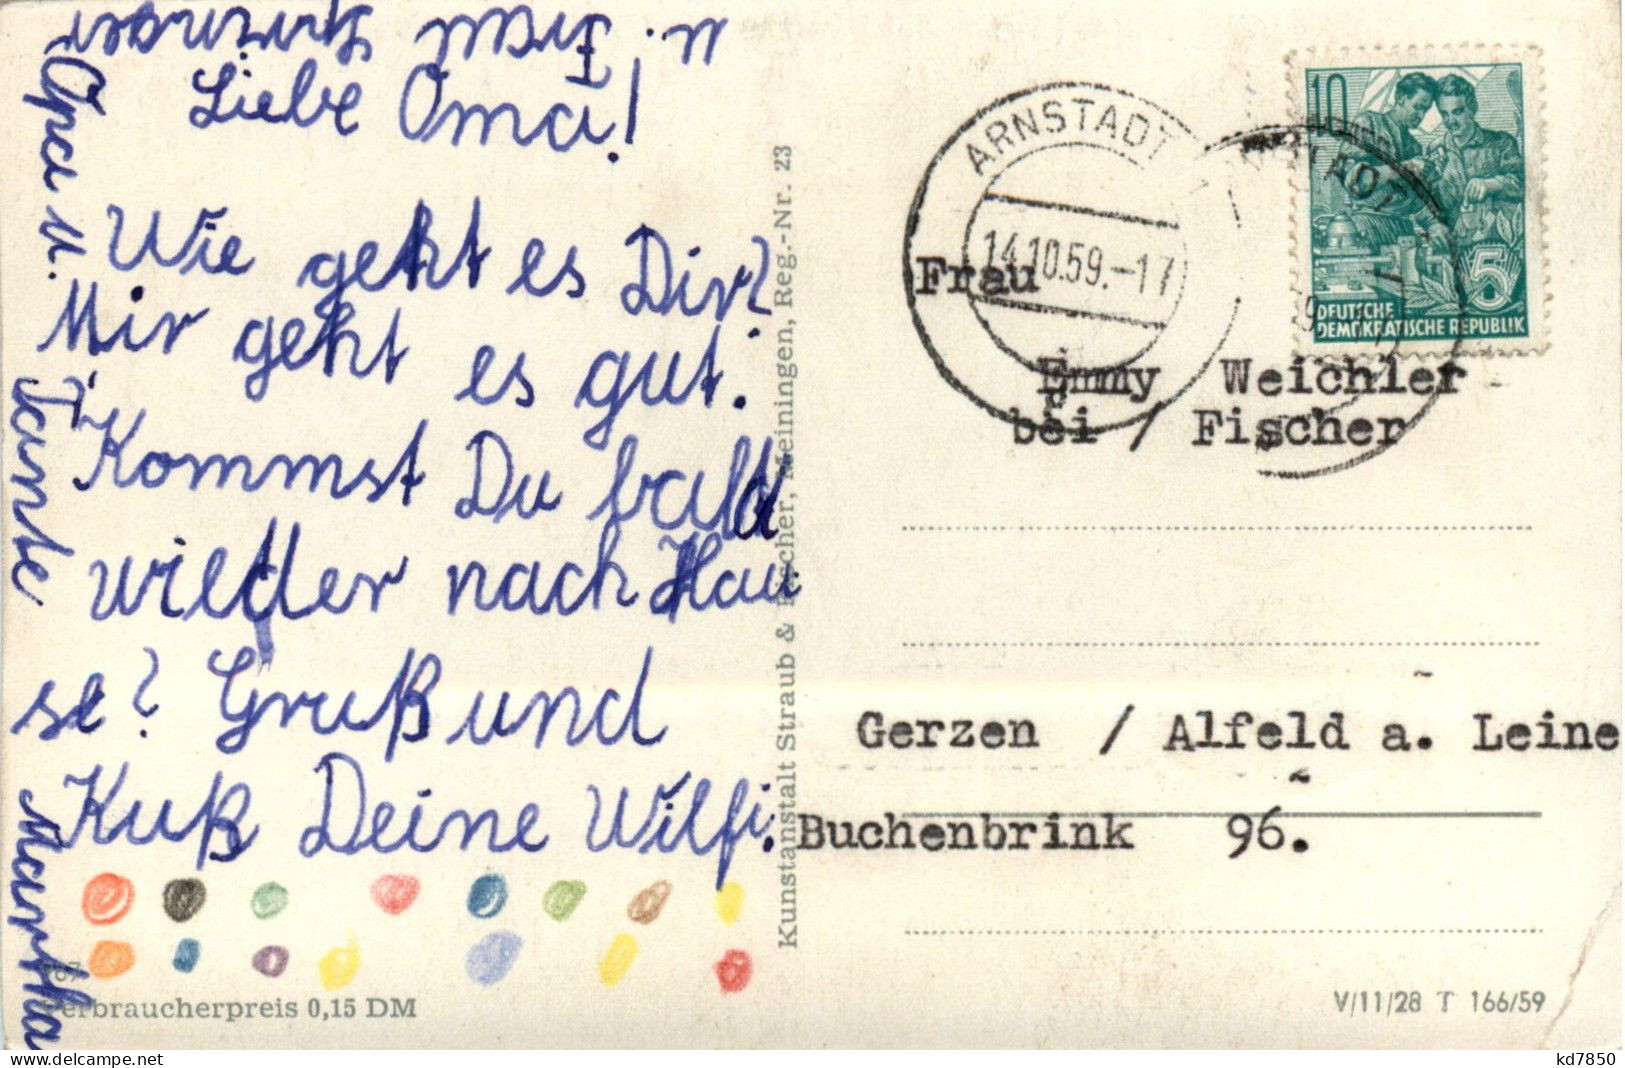 Liebe Oma!
Wie geht es Dir?
Mir geht es gut.
Kommst Du bald
wieder nach Hau
se? Gruß und
Kuß Deine Wilfi.
Opa u. Tante Martha
u. Frau
987
Verbraucherpreis 0,15 DM
Kunstanstalt Straub & Fischer, Meiningen, Reg.-Nr. 23
ARNSTADT
14.10.59.-17
10
5
DEUTSCHE
DEMOKRATISCHE REPUBLIK
Frau
Emmy Weichler
bei / Fischer
Gerzen / Alfeld a. Leine
Buchenbrink 96.
V/11/28 T 166/59
kd7850